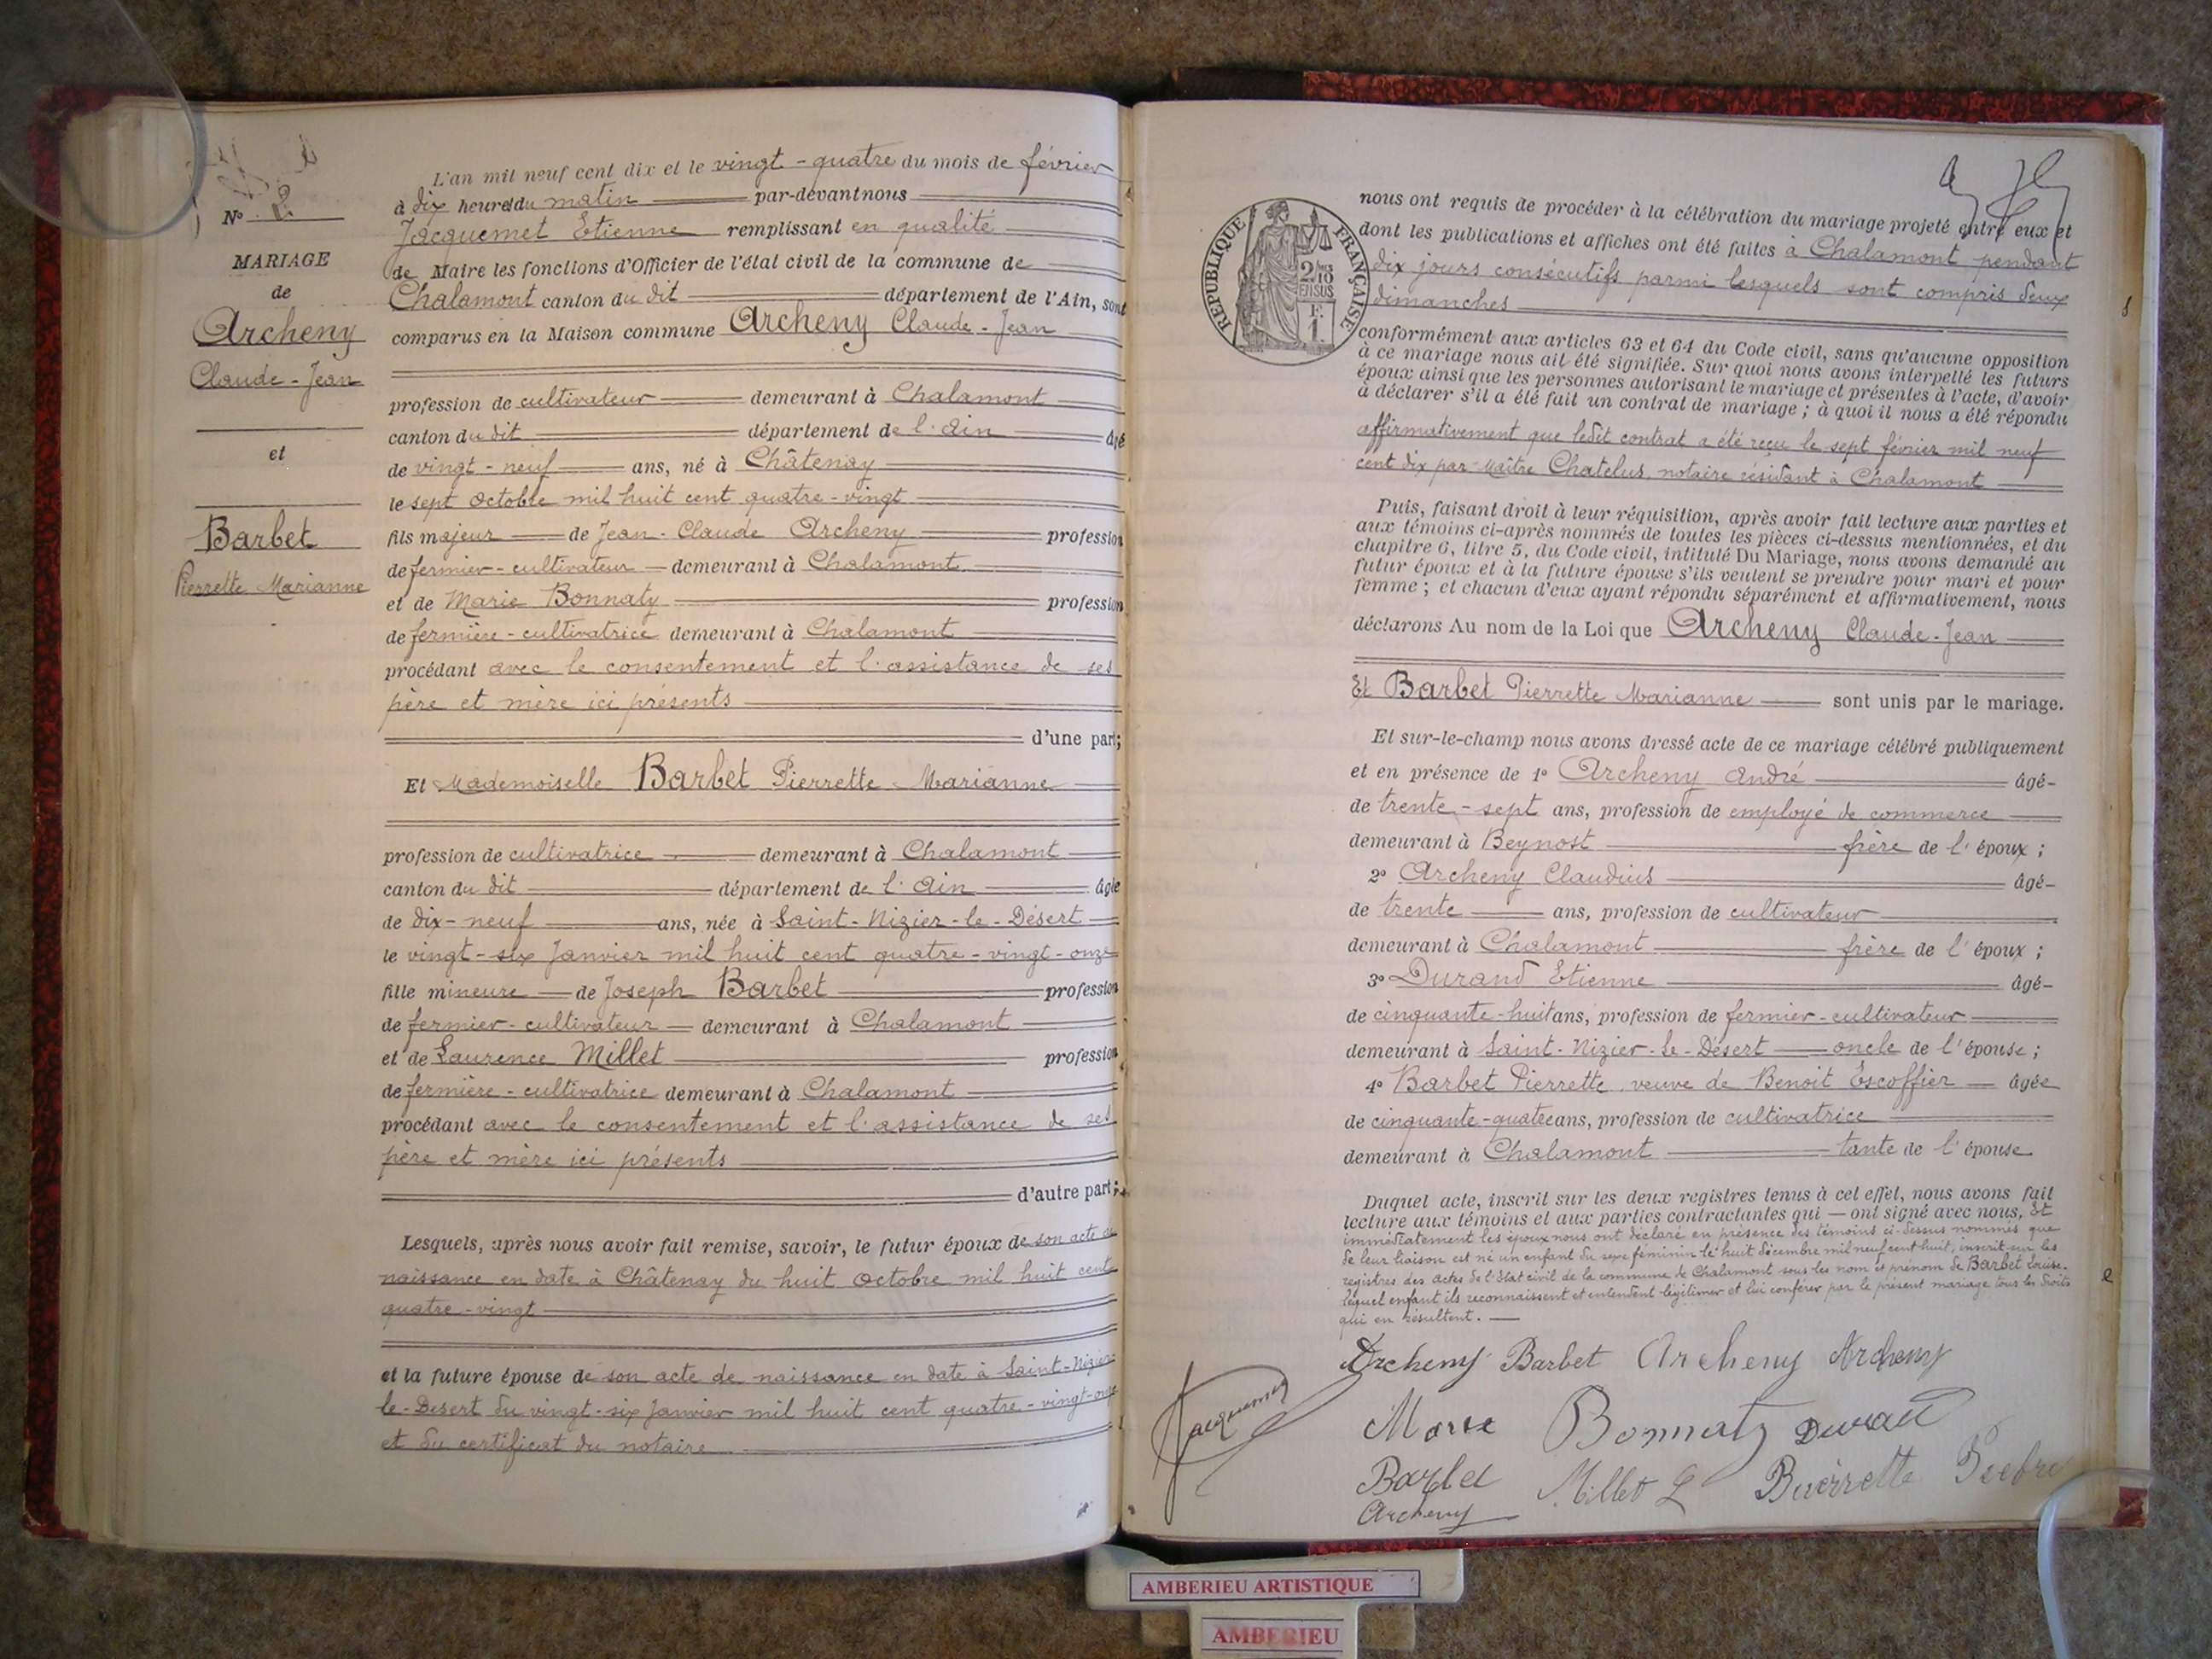 N° 2
MARIAGE
de
Archeny
Claude-Jean
et
Barbet
Pierrette Marianne
L'an mil neuf cent dix et le vingt-quatre du mois de février
à dix heures du matin par-devant nous
Jacquemet Etienne remplissant en qualité
de Maire les fonctions d'Officier de l'état civil de la commune de
Chalamont canton du dit département de l'Ain, sont
comparus en la Maison commune Archeny Claude-Jean
profession de cultivateur demeurant à Chalamont
canton du dit département de l'Ain âgé
de vingt-neuf ans, né à Châtenay
le sept octobre mil huit cent quatre-vingt
fils majeur de Jean-Claude Archeny profession
de fermier-cultivateur demeurant à Chalamont
et de Marie Bonnaty profession
de fermière-cultivatrice demeurant à Chalamont
procédant avec le consentement et l'assistance de ses
père et mère ici présents
d'une part;
Et Mademoiselle Barbet Pierrette Marianne
profession de cultivatrice demeurant à Chalamont
canton du dit département de l'Ain âgée
de dix-neuf ans, née à Saint-Nizier-le-Désert
le vingt-six Janvier mil huit cent quatre-vingt-onze
fille mineure de Joseph Barbet profession
de fermier-cultivateur demeurant à Chalamont
et de Laurence Millet profession
de fermière-cultivatrice demeurant à Chalamont
procédant avec le consentement et l'assistance de ses
père et mère ici présents
d'autre part;
Lesquels, après nous avoir fait remise, savoir, le futur époux de son acte de
naissance en date à Châtenay du huit octobre mil huit cent
quatre-vingt
et la future épouse de son acte de naissance en date à Saint-Nizier-
le-Désert du vingt-six Janvier mil huit cent quatre-vingt-onze
et du certificat du notaire
RÉPUBLIQUE FRANÇAISE
2/10 EN SUS
F. 1.
nous ont requis de procéder à la célébration du mariage projeté entre eux et
dont les publications et affiches ont été faites à Chalamont pendant
dix jours consécutifs parmi lesquels sont compris deux
dimanches
conformément aux articles 63 et 64 du Code civil, sans qu'aucune opposition
à ce mariage nous ait été signifiée. Sur quoi nous avons interpellé les futurs
époux ainsi que les personnes autorisant le mariage et présentes à l'acte, d'avoir
à déclarer s'il a été fait un contrat de mariage; à quoi il nous a été répondu
affirmativement que ledit contrat a été reçu le sept février mil neuf
cent dix par Maître Chatelus, notaire résidant à Chalamont
Puis, faisant droit à leur réquisition, après avoir fait lecture aux parties et
aux témoins ci-après nommés de toutes les pièces ci-dessus mentionnées, et du
chapitre 6, titre 5, du Code civil, intitulé Du Mariage, nous avons demandé au
futur époux et à la future épouse s'ils veulent se prendre pour mari et pour
femme; et chacun d'eux ayant répondu séparément et affirmativement, nous
déclarons Au nom de la Loi que Archeny Claude-Jean
Et Barbet Pierrette Marianne sont unis par le mariage.
Et sur-le-champ nous avons dressé acte de ce mariage célébré publiquement
et en présence de 1° Archeny André âgé
de trente-sept ans, profession de employé de commerce
demeurant à Beynost frère de l'époux;
2° Archeny Claudius âgé
de trente ans, profession de cultivateur
demeurant à Chalamont frère de l'époux;
3° Durand Etienne âgé
de cinquante-huit ans, profession de fermier-cultivateur
demeurant à Saint-Nizier-le-Désert oncle de l'épouse;
4° Barbet Pierrette, veuve de Benoit Escoffier âgée
de cinquante-quatre ans, profession de cultivatrice
demeurant à Chalamont tante de l'épouse
Duquel acte, inscrit sur les deux registres tenus à cet effet, nous avons fait
lecture aux témoins et aux parties contractantes qui — ont signé avec nous, Et
immédiatement les époux nous ont déclaré en présence des témoins ci-dessus nommés que
de leur liaison est né un enfant du sexe féminin le huit décembre mil neuf cent huit, inscrit sur les
registres des actes de l'état civil de la commune de Chalamont sous les nom et prénom de Barbet Louise.
lequel enfant ils reconnaissent et entendent légitimer et lui conférer par le présent mariage tous les droits
qui en résultent.
Archeny Barbet Archeny Archeny
Jacquemet
Marie Bonnaty Durand
Barbet Millet L
Archeny
AMBERIEU ARTISTIQUE
AMBERIEU